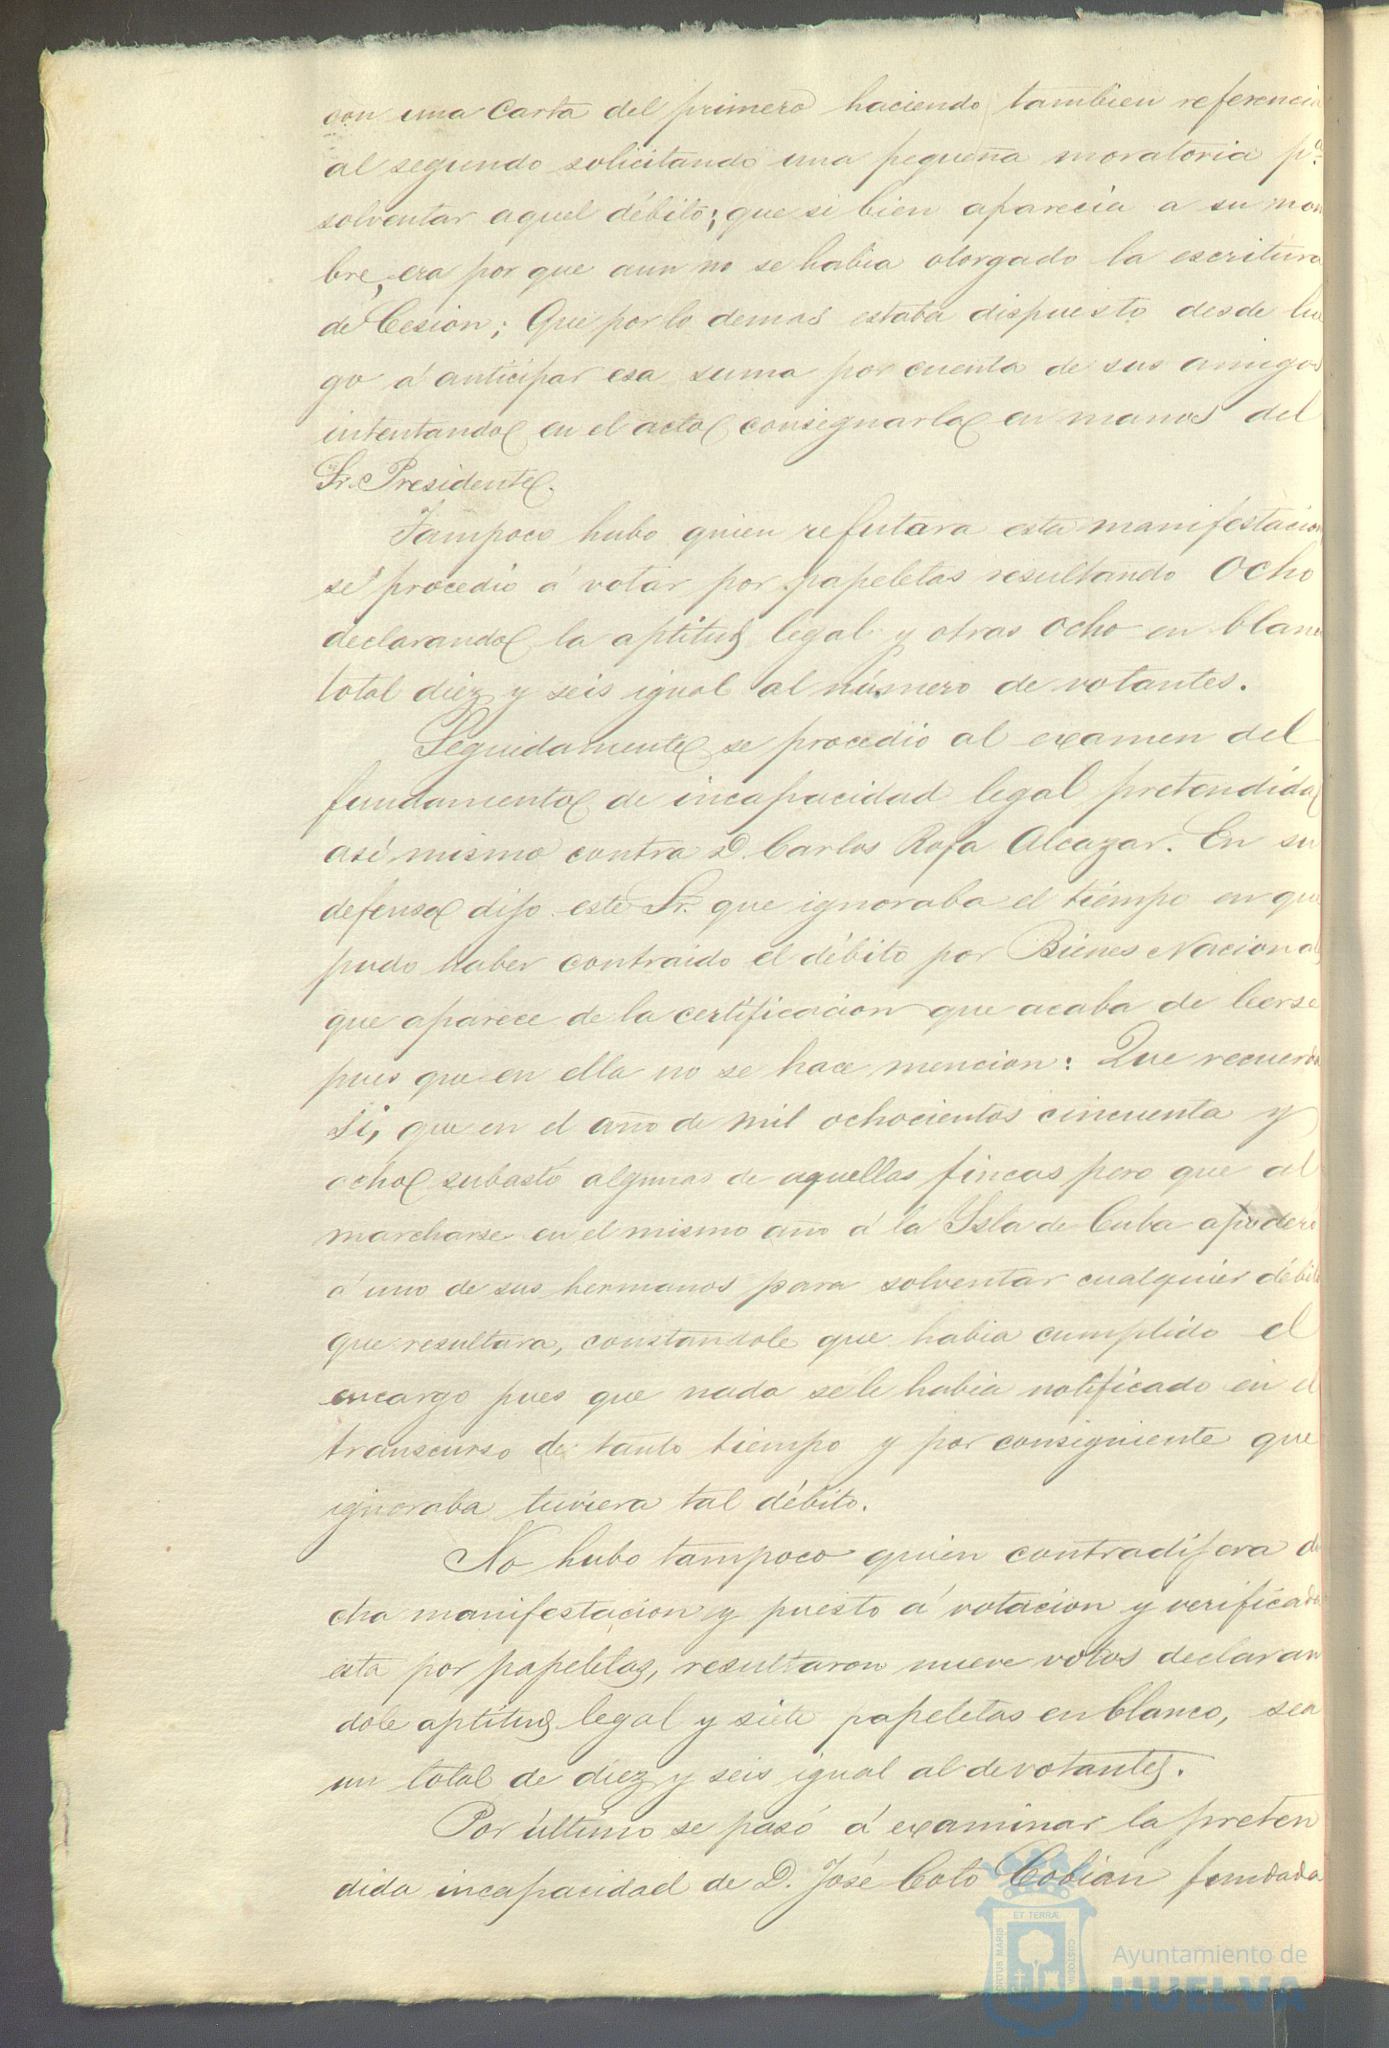 con una Carta del primero haciendo tambien referencia
al segundo solicitando una pequeña moratoria pª
solventar aquel débito; que si bien aparecia a su nom
bre, era por que aun no se habia otorgado la escritura
de Cesion; Que por lo demas estaba dispuesto desde lue
go á anticipar esa suma por cuenta de sus amigos
intentando en el acto consignarla en manos del
Sr. Presidente.
Tampoco hubo quien refutara esta manifestacion
se procedió á votar por papeletas resultando Ocho
declarando la aptitud legal y otras ocho en blanc
total diez y seis igual al número de votantes.
Seguidamente se procedió al examen del
fundamento de incapacidad legal pretendida
asi mismo contra D. Carlos Rofa Alcazar. En su
defensa dijo este Sr. que ignoraba el tiempo en que
pudo haber contraido el débito por Bienes Nacional
que aparece de la certificacion que acaba de leerse
pues que en ella no se hace mencion: Que recuerda
si, que en el año de mil ochocientos cincuenta y
ocho subastó algunas de aquellas fincas pero que al
marcharse en el mismo año á la Ysla de Cuba apoderó
á uno de sus hermanos para solventar cualquier débito
que resultara, constandole que habia cumplido el
encargo pues que nada se le habia notificado en el
transcurso de tanto tiempo y por consiguiente que
ignoraba tuviera tal débito.
No hubo tampoco quien contradijera di
cha manifestacion y puesto á votacion y verificada
esta por papeletas, resultaron nueve votos declaran
dole aptitud legal y siete papeletas en blanco, sea
un total de diez y seis igual al de votantes.
Por último se pasó á examinar la preten
dida incapacidad de D. José Coto Cobian fundada
ET TERRÆ
PORTUS MARIS
CUSTODIA
Ayuntamiento de
HUELVA